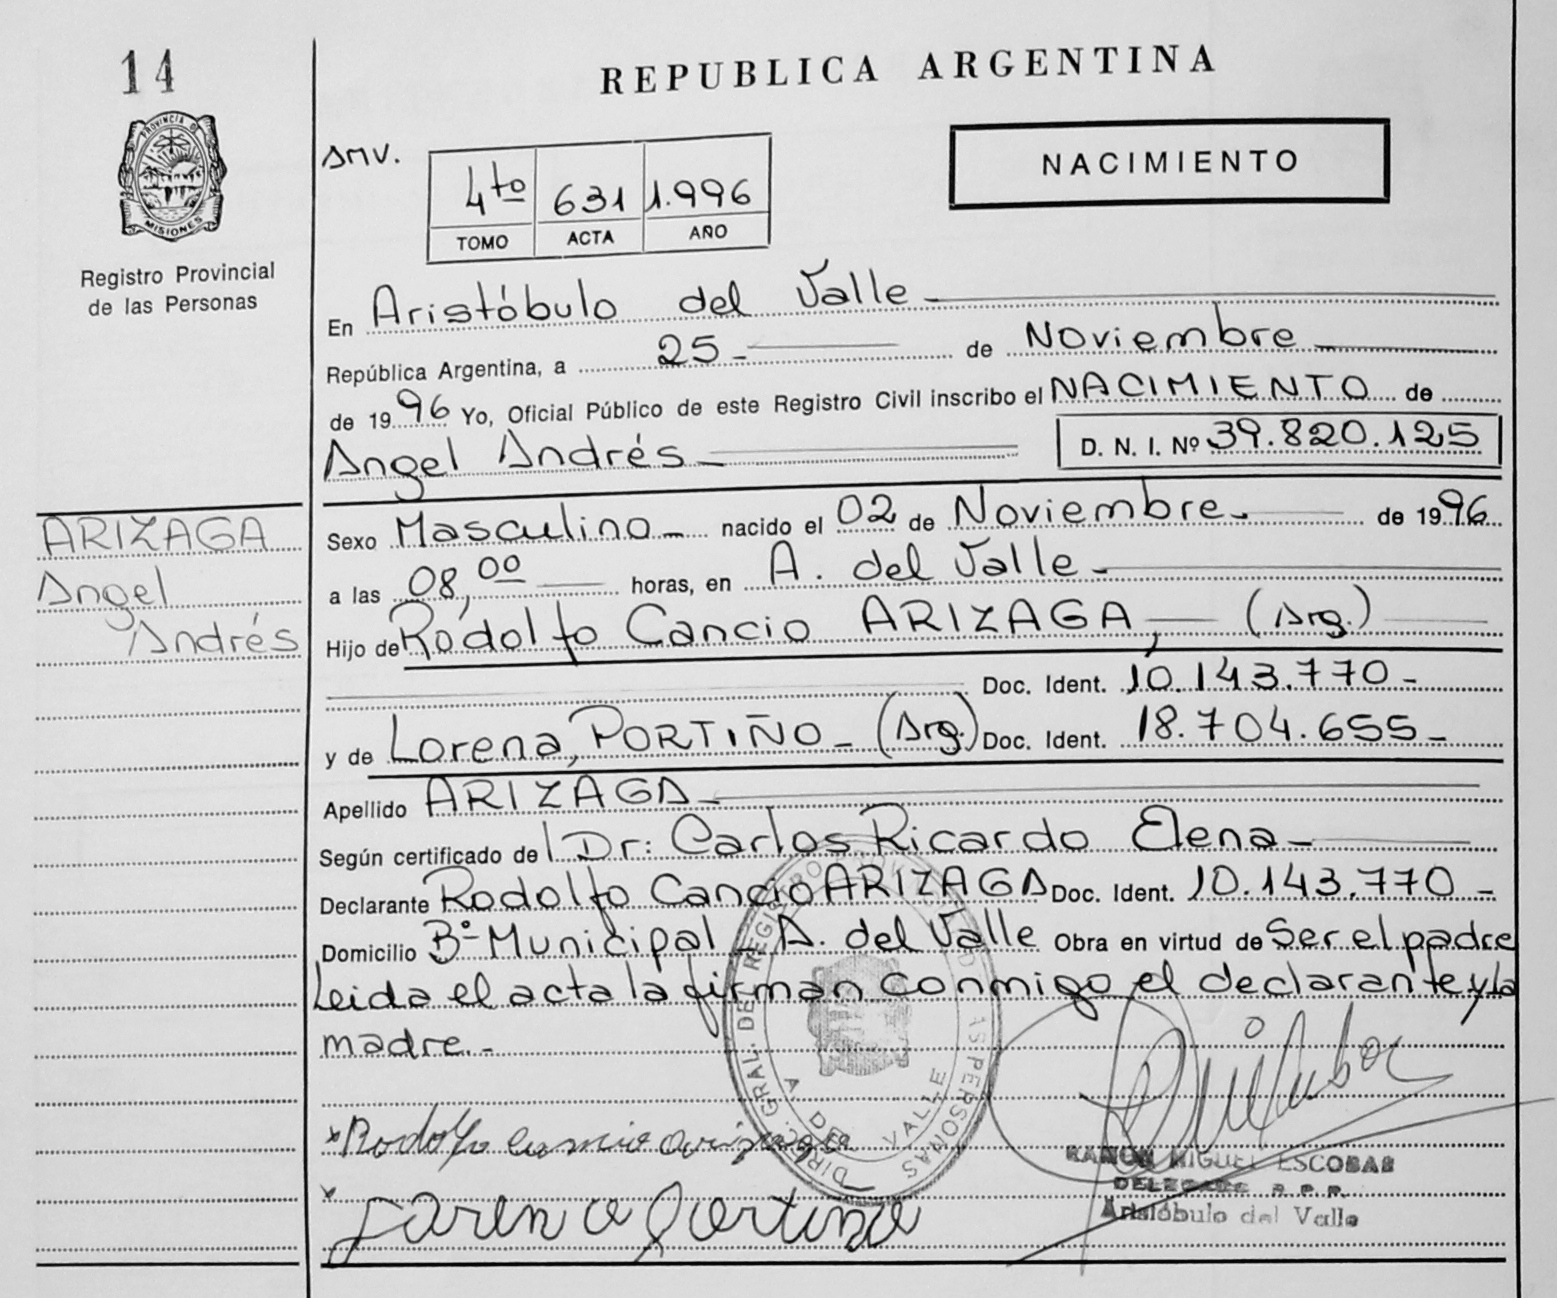 14
REPUBLICA ARGENTINA
PROVINCIA D
MISIONES
Registro Provincial
de las Personas
AMV.
4to 631 1.996
TOMO ACTA AÑO
NACIMIENTO
En Aristóbulo del Valle
República Argentina, a 25 de Noviembre
de 1996 Yo, Oficial Público de este Registro Civil inscribo el NACIMIENTO de
Angel Andrés D. N. I. Nº 39.820.125
ARIZAGA
Angel
Andrés
Sexo Masculino nacido el 02 de Noviembre de 1996
a las 08,00 horas, en A. del Valle
Hijo de Rodolfo Cancio ARIZAGA, (Arg.)
Doc. Ident. 10.143.770
y de Lorena, PORTIÑO (Arg.) Doc. Ident. 18.704.655
Apellido ARIZAGA
Según certificado del Dr: Carlos Ricardo Elena
Declarante Rodolfo Cancio ARIZAGA Doc. Ident. 10.143.770
Domicilio Bº Municipal - A. del Valle Obra en virtud de Ser el padre
Leida el acta la firman conmigo el declarante y la
madre.-
x Rodolfo cancio arizaga
x Lorena Portiño
RAMON MIGUEL ESCOBAR
DELEGADO R.P.P.
Aristóbulo del Valle
A. DEL VALLE